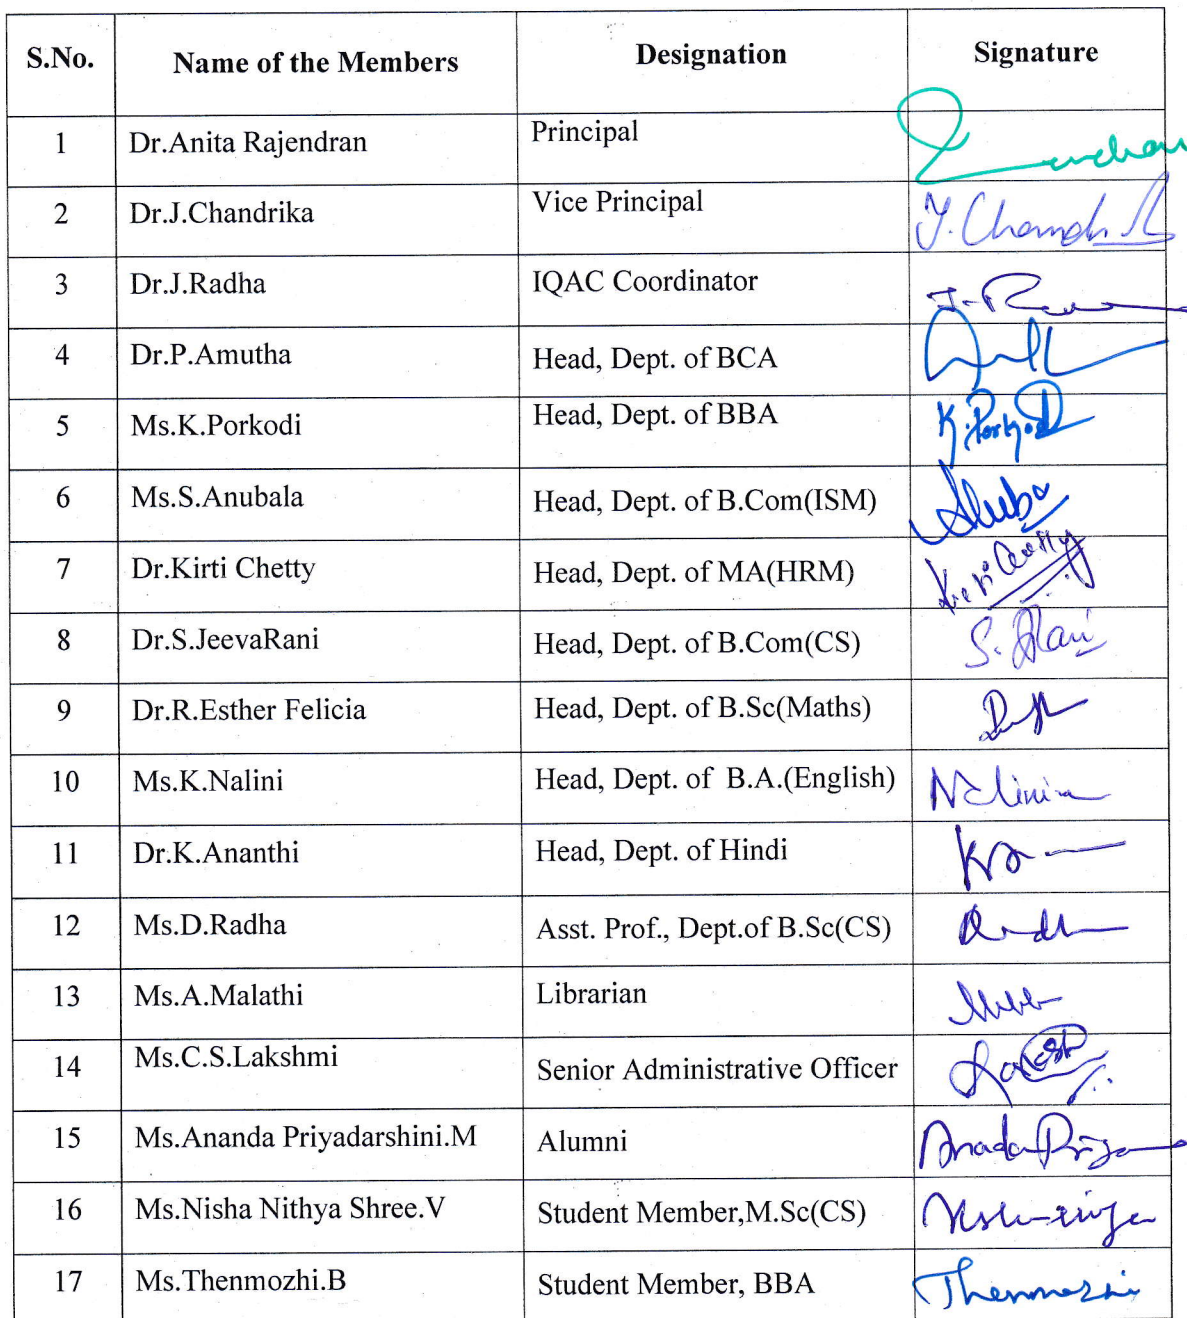 S.No. Name of the Members Designation Signature
1 Dr.Anita Rajendran Principal
2 Dr.J.Chandrika Vice Principal J. Chandr
3 Dr.J.Radha IQAC Coordinator
4 Dr.P.Amutha Head, Dept. of BCA
5 Ms.K.Porkodi Head, Dept. of BBA K. Porkodi
6 Ms.S.Anubala Head, Dept. of B.Com(ISM)
7 Dr.Kirti Chetty Head, Dept. of MA(HRM) Kirti Chetty
8 Dr.S.JeevaRani Head, Dept. of B.Com(CS) S. JRani
9 Dr.R.Esther Felicia Head, Dept. of B.Sc(Maths)
10 Ms.K.Nalini Head, Dept. of B.A.(English) Nalini
11 Dr.K.Ananthi Head, Dept. of Hindi
12 Ms.D.Radha Asst. Prof., Dept.of B.Sc(CS)
13 Ms.A.Malathi Librarian
14 Ms.C.S.Lakshmi Senior Administrative Officer
15 Ms.Ananda Priyadarshini.M Alumni
16 Ms.Nisha Nithya Shree.V Student Member,M.Sc(CS)
17 Ms.Thenmozhi.B Student Member, BBA Thenmozhi